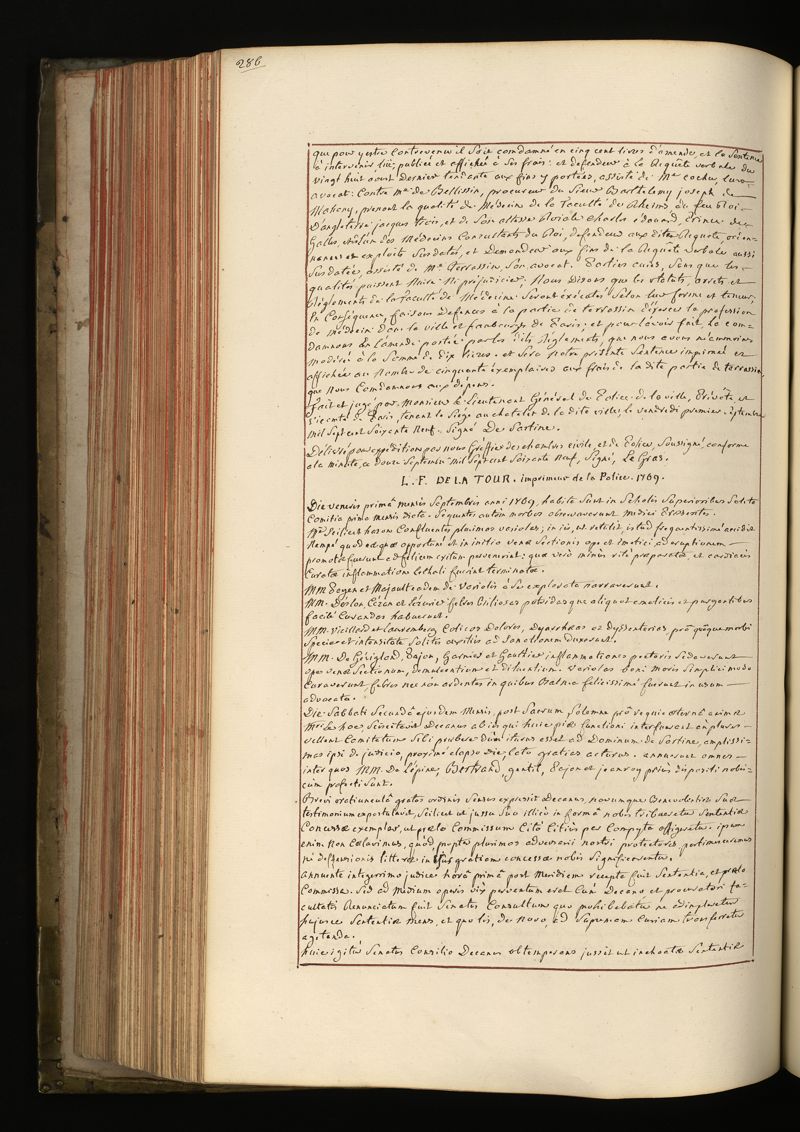 286
que pour y estre Contrevenu il Soit comdamné en cinq cent livres d'amende, et la Sentence
à intervenir lüe, publiée et affichée à Ses frais: et deffendeur à la Requête verbale du
vingt huit aoust Dernier tendante aux fins y portées, assisté de Me cochu, Son
avocat: Contre Me de Bellissin, procureur du Sieur Barthelemy joseph de
Mahony, prenant la qualité de Medecin de la faculté de Rheims du feu Roi
D'angleterre jacques trois, et de Son altesse Roiale charles edouard, Prince de
Galles, et l'un des Medecins Consultants du Roi, deffendeur aux dites Requete, ordon-
nances et exploits Susdatés, et Demandeur aux fins de la Requete verbale aussi
Susdatée, assisté de Me Terrassin, Son avocat. Parties ouies, Sans que les
qualités puissent Nuire Ni préjudicier; Nous Disons que les statuts, arrets et
Réglements de la faculté de Médecine Seront exécutés Selon leur forme et teneur,
En Conséquence, faisons Defenses à la partie de terrassin d'exercer la profession
de Médecin dans la ville et fauxbourgs de Paris; et pour l'avoir fait, Le con-
damnons En l'amende portée par les dits Réglements, que nous avons néanmoins
modérée à la Somme de dix livres. et Sera Notre présente Sentence imprimée et
affichée au Nombre de cinquante exemplaires aux frais de la dite partie de terrassin,
que Nous Comdamnons aux dépens.
Fait et jugé par Monsieur le Lieutenant Général de Police de la ville, Prévôté et
Vicomté de Paris, tenant le Siege au chatelet de la dite ville, le vendredi premier Septembre
mil Sept cent Soixante Neuf. Signé De Sartine.
Délivré pour expéditions par nous Greffier des chambres civile, et de Police, Soussigné, conforme
à la minute, ce douze Septembre Mil Sept cent Soixante Neuf, Signé, Le Gras.
L. F. DE LA TOUR, imprimeur de la Police. 1769.
Die veneris primâ mensis Septembris anni 1769, habita Sunt in Scholis Superioribus Solita
Comitia prima mensis dicta. Sequentes autem morbos observaverunt Medici Praesentes.
Nempè quod eae quae opportunè et in initio venae Sectionis ope et emetici ad eruptionem
promotae fuerunt ad felicem exitum pervenerint; quae verò minùs ritè praeparatae, et cardiacis
Curatae inflammatione lethali fuerint terminatae.
MM Poyen et Majault eadem de Variolis à Se explorata narraverunt.
MM. Deslon, Cézan et febres biliosas putridas que aliquot emeticis et purgantibus
facilè Curandas habuerunt.
MM. Vieillard et Laurembeeg Colicos Dolores, Dyarrhaeas ac Dyssenterias prò quâque morbi
Specie et intensitate Solitis auxiliis ad Sanationem duxerunt.
MM. De Gévigland, Pajon, Garnier et Gaultier inflammationes pectoris Sedaverunt
ope venae Sectionum, demulcentium et diluentium. Variolas boni Moris Simplici modo
Curaverunt, febres nec non ardentes in quibus balnea felicissimè fuerunt in usum
advocata.
Die Sabbati Secundâ ejusdem Mensis, post Sacrum Solemne prò requie aeternâ animae
hoc, Sciscitavit Decanus ab iis qui huic piae functioni interfuerant an plures
vellent Comitatum Sibi praebere dùm iturus esset ad Dominum de Sartine, amplissi-
mas ipsi de judicio, proximè elapso die, lato gratias acturus. annuerunt omnes
inter quos MM. De Lépine, Bertrand, gentil, Pajon et jeanroy priùs dispositi nobis-
cùm profecti Sunt.
Brevi oratiunculâ gratos ordinis Sensus expressit Decanus, novumque Benevolentiae Suae
testimonium expostulavit, Scilicet ut jussu Suo illicò in formâ nobis tribueretur Sententiae
Concessae exemplar, ut praelo Commissum Citò Citiùs per Compita affigeretur. ipsum
enim Non Celavimus, quòd propter plurimos adversarii nostri protectores, pertimescramus
nè defensionis litterae in ejus gratiam concessae nobis Significarentur.
Annuente integerrimo judice horâ primâ post Meridiem recepta fuit Sententia, et praelo
Commissa. Sed ad Medium operis vix perventum erat Cùm Decano et procuratori fa-
cultatis Renunciatum fuit Senatûs Consultum quo prohibebatur ne adimpleretur
hujusce Sententiae mens, et quo lis, de Novo, ad Supremam Curiam transferretur
agitanda.
huic igitur Senatûs Consilio Decanus obtemperans jussit ut inchoatae Sententiae